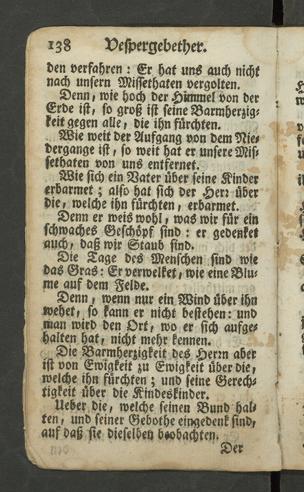 138 Vespergebether.
den verfahren: Er hat uns auch nicht
nach unsern Missethaten vergolten.
Denn, wie hoch der Himmel von der
Erde ist, so groß ist seine Barmherzig-
keit gegen alle, die ihn fürchten.
Wie weit der Aufgang von dem Nie-
dergange ist, so weit hat er unsere Mis-
sethaten von uns entfernet.
Wie sich ein Vater über seine Kinder
erbarmet; also hat sich der Herr über
die, welche ihn fürchten, erbarmet.
Denn er weis wohl, was wir für ein
schwaches Geschöpf sind: er gedenket
auch, daß wir Staub sind.
Die Tage des Menschen sind wie
das Gras: Er verwelket, wie eine Blu-
me auf dem Felde.
Denn, wenn nur ein Wind über ihn
wehet, so kann er nicht bestehen: und
man wird den Ort, wo er sich aufge-
halten hat, nicht mehr kennen.
Die Barmherzigkeit des Herrn aber
ist von Ewigkeit zu Ewigkeit über die,
welche ihn fürchten; und seine Gerech-
tigkeit über die Kindeskinder.
Ueber die, welche seinen Bund hal-
ten, und seiner Gebothe eingedenk sind,
auf daß sie dieselben beobachten.
Der